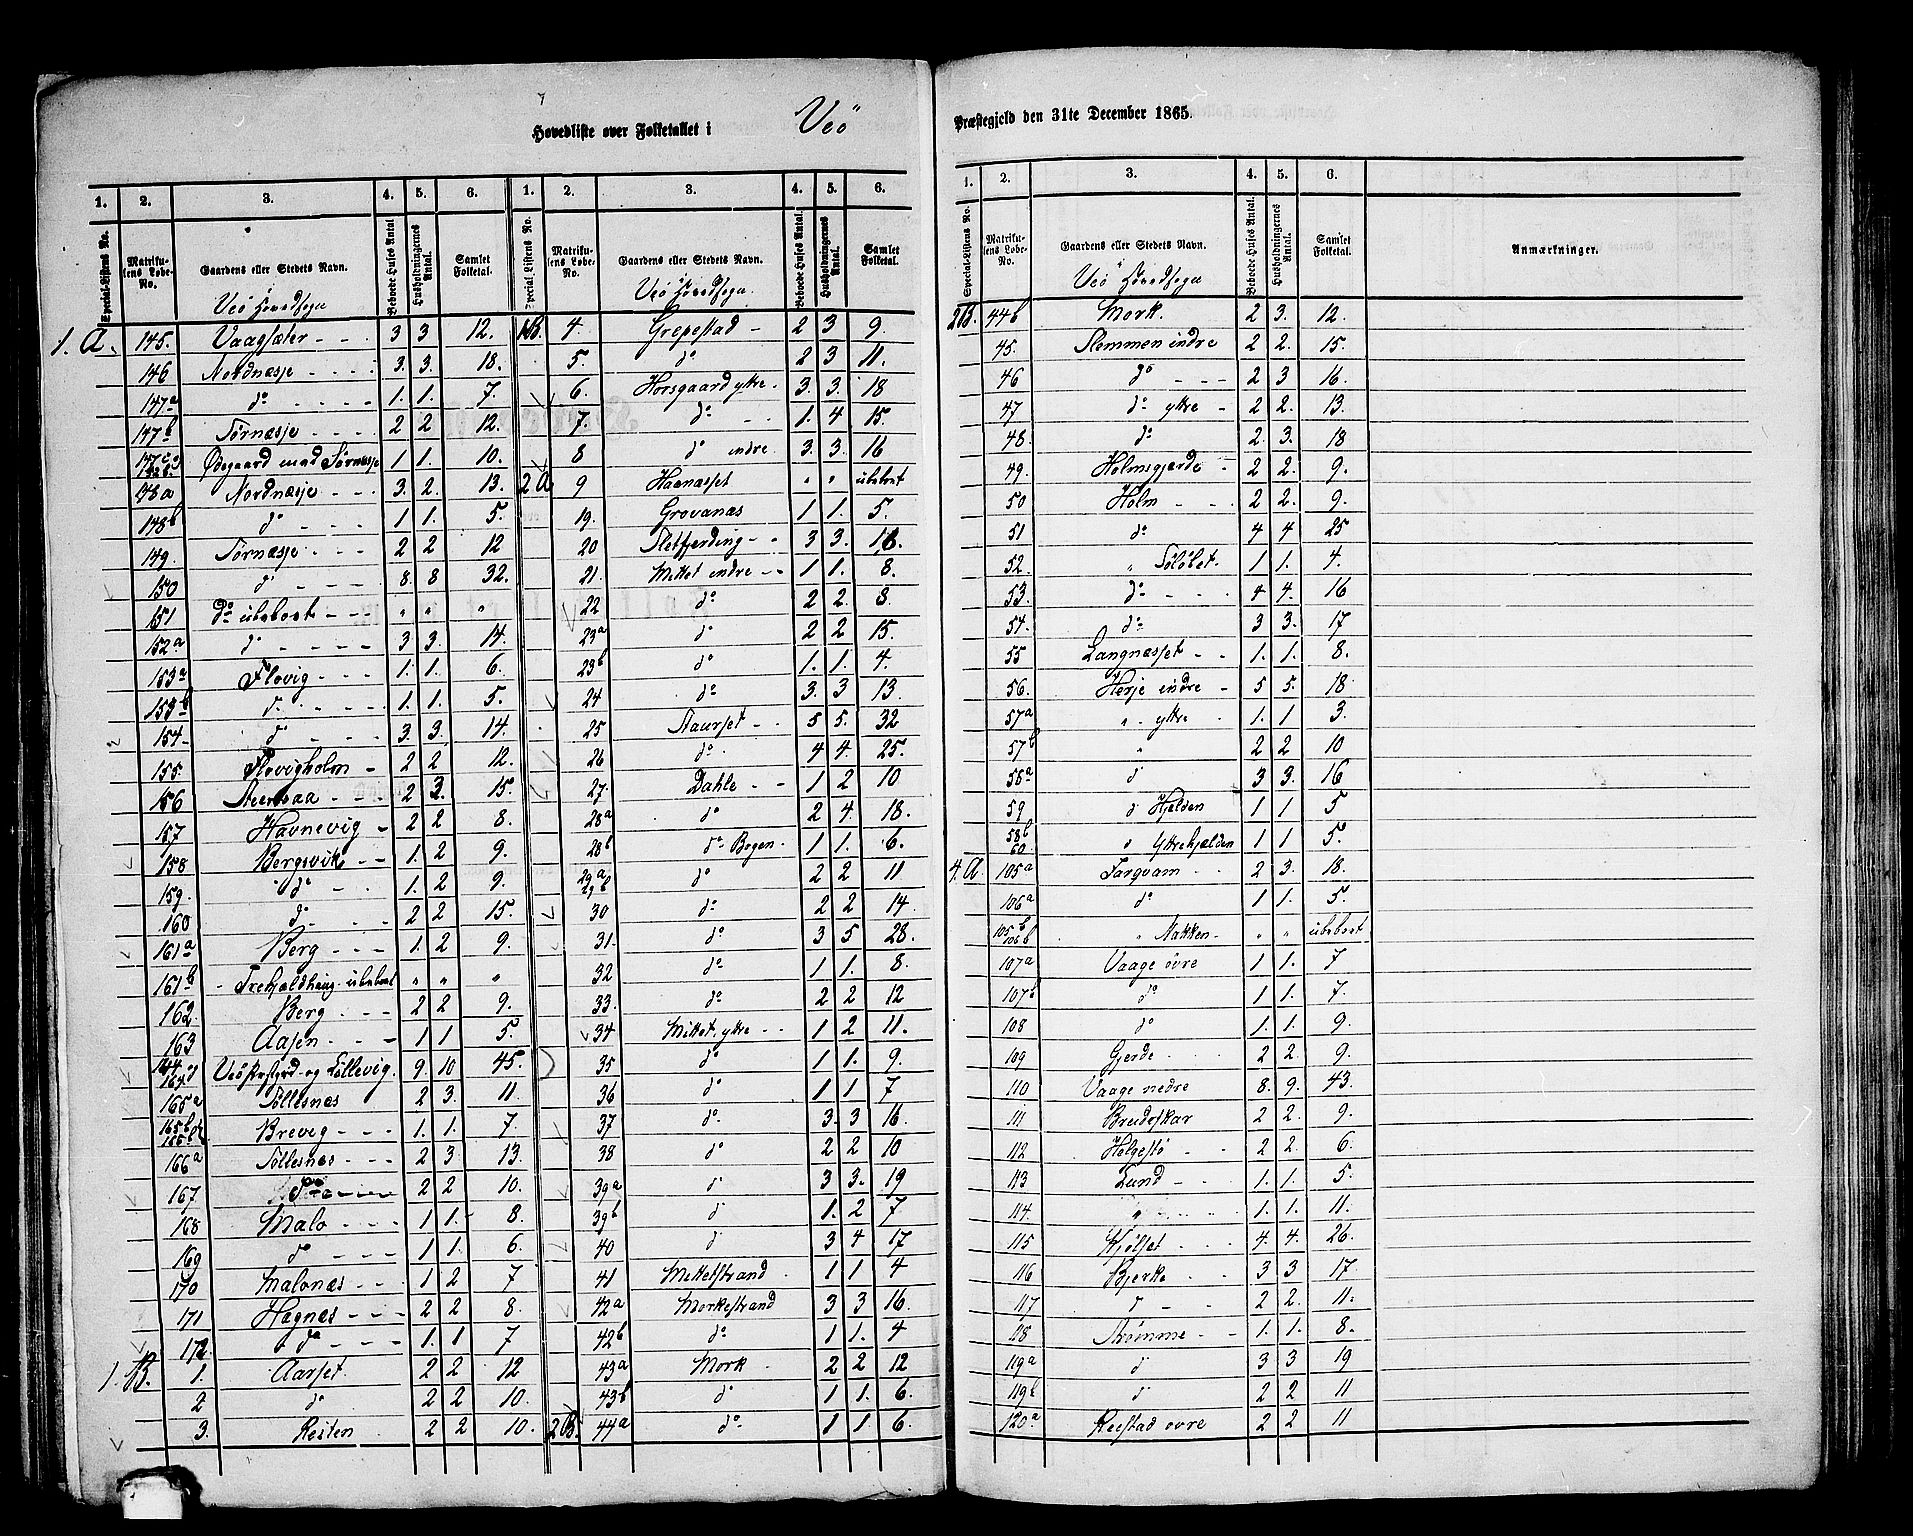 Hovedliste over Folketallet i Veö Præstegjeld den 31te December 1865.
1. 2. 3. 4. 5. 6. 1. 2. 3. 4. 5. 6.
Special-Listens No. Matrikulens Löbe-No. Gaardens eller Stedets Navn. Beboede Huses Antal Husholdningernes Antal. Samlet Folketal. Special-Listens No. Matrikulens Löbe-No. Gaardens eller Stedets Navn. Beboede Huses Antal. Husholdningernes Antal. Samlet Folketal.
Veö Hovedsogn Veö Hovedsogn
1. A. 145. Vaagsæter - - 3 3 12.
146 Nordnæsje - - - - 3. 3. 18.
147a do - - - - 1. 1. 7.
147b Sørnæsje - - - - 2 2 12.
147c Ødegaard med Sørnæsje 1 1. 10.
148a Nordnæsje - - - 3. 2. 13.
148b do - - - - 1 1. 5.
149. Sørnæsje - - - 2 2 12
150 d - - - - 8. 8 32.
151 do ubeboet - - - " " "
152a do - - - - 3 3. 14.
153a Flovig - - - 1. 1. 6.
153b d. - - - - 1. 1. 5.
154. d - - - 3. 3. 14.
155. Flovigholm - 2 2 12.
156 Steensaa - - - 2 3. 15.
157 Havnevig - 2 2 8.
158 Bergsvik - - 1. 2 9.
159. do - 1. 2 9.
160 do - - 2 2 15.
161a Berg - - - 1. 2 9.
161b Trehjeldhaug ubeboet " " "
162. Berg - - - 2 2 9.
163 Aasen - - - 1 1 5.
164 Veö Præstgrd og Söllevig. 9. 10 45.
165a Söllesnæs 2 3. 11.
165b Brevig - - - 1. 1. 7.
166a Söllesnæs - - - 2 3. 13.
167 do - - - 2 2 10.
168 Malo - - - 1 1. 8.
169 do - - - 1 1. 6.
170 Malonæs - - 1 2 7
171 Hagnæs - - - 2 2 8.
172. do - - - 1. 1 7
1. B. 1. Aarset. 2 2 12
2 do 2 2 10.
3. Resten 2 2 10.
1B. 4. Grepestad - 2 3 9.
5. do 2 3 11.
6. Horsgaard ytre. 3. 3. 18
7. do - - 1. 4 15.
8 do indre. 3. 3. 16
2 A 9 Haanæsset " " ubeboet
19. Grovanæs 1 1. 5.
20 Sletfjerding - - 3 3. 18.
21. Mittet indre - - 1 1. 8.
22 do 2 2. 8.
23a do 2 2 15.
23b do 1. 1. 4.
24 do 3. 3 13.
25 Staurset - - 5 5. 32
26 do 4 4. 25.
27. Dahle - - 1 2 10
28a do 2 4. 18.
28b do Bogen - 1 1. 6.
29a 29b do 2 2 11
30 do 2 2 14.
31. do 3 5 28.
32 do 1 1. 8.
33. do 2 2 12
34 Mittet ytre - - 1 2 11.
35 do 1 1. 9.
36 d 1 1 7
37 do. 3. 3 16.
38 do 2 2 10
39a d 3 3. 19
39b d 1. 2 7
40 d 3 4 17
41 Mittetstrand 1 1 4
42a Morkestrand 3 3 16.
42b do 1 1. 4
43a Mork 2 2 12
43b do 1 1. 6.
2B. 44a do 1 1. 6
1. 2. 3. 4. 5. 6.
Special-Listens No. Matrikulens Löbe-No. Gaardens eller Stedets Navn. Beboede Huses Antal. Husholdningernes Antal. Samlet Folketal. Anmærkninger.
Veö Hovedsogn
2B. 44b Mork. 2 3. 12.
45. Slemmen indre 2 2. 15.
46 do - - - 2 3 16.
47 do ytre - 2 2. 13.
48. do 2. 3. 18
49. Holmsgjerde - 2 2. 9.
50 Holm - - - 2 2. 9.
51 do 4 4 25
52. " Söløbet. 1 1. 4.
53. do - - - 4 4. 16
54. do 3 3. 17
55 Langnæsset - - 1. 1. 8.
56. Herje indre - 5 5. 18
57a " - ytre - 1. 1 3.
57b " 2 2 10
58a d 3 3. 16
59 d Hjelden 1 1 5
58b 60 d Ytrehjelden 1 1 5.
4. A. 105a Torvam - - 2 3. 18.
106a do 1 1. 5.
105b 106b " Nakken - " " ubeboet
107a Vaage övre 1 1. 7
107b do 1 1. 7.
108 do 1. 1. 9.
109 Gjerde - - 2 2. 9.
110 Vaage nedre 8. 9. 43.
111 Breideskar 2 2. 9.
112 Helgestö - 2 2. 6.
113 Lund - - 1. 1. 5.
114. " - - 1. 1. 11.
115 Kjölset - - 4. 4. 26.
116 Bjerke - - 3 3 17.
117 d - - 2 2. 11.
118 Strömme - - 1. 1. 8.
119a d 3 3 19
119b d 2 2 11
120a Reestad ovre 2 2 11